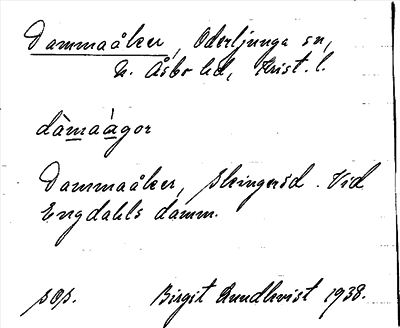 Dammaåker, Oderljunga sn,
N. Åsbo hd, Krist. l.
dàmaágor
Dammaåker, Skingeröd. Vid
Engdahls damm.
sos. Birgit Rundkvist 1938.